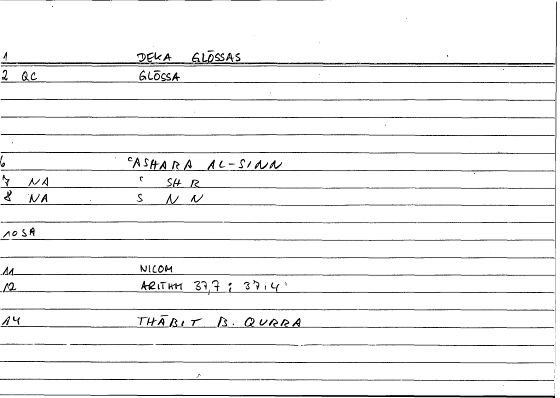 1 DEKA GLŌSSAS
2 QC GLŌSSA
6 ʿASHARA AL-SINN
7 NA ʿ SH R
8 NA S N N
10 SA
11 NICOM
12 ARITHM 37,7 ; 37,4
14 THĀBIT B. QURRA